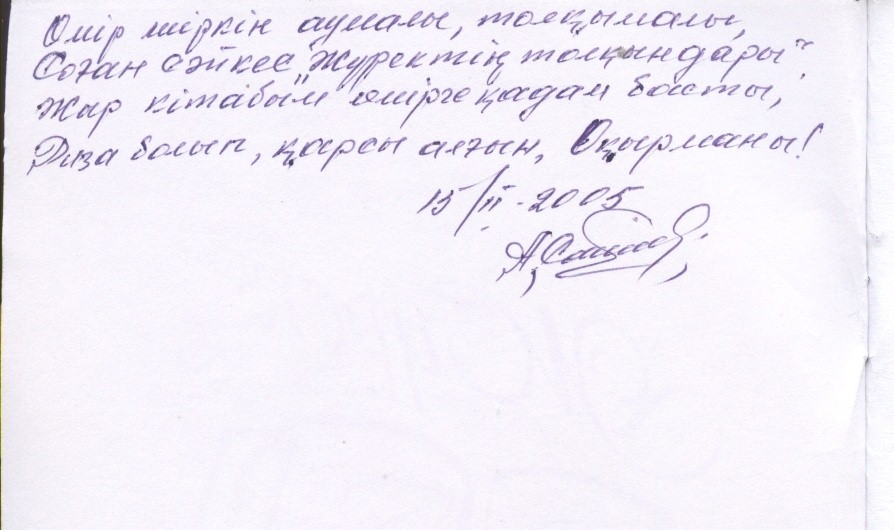 Өмір шіркін аумалы, толқымалы,
Соған сәйкес „Жүректің толқындары"
Жар кітабым өмірге қадам басты,
Риза болып, қарсы алғын, Оқырманы!
15/II-2005